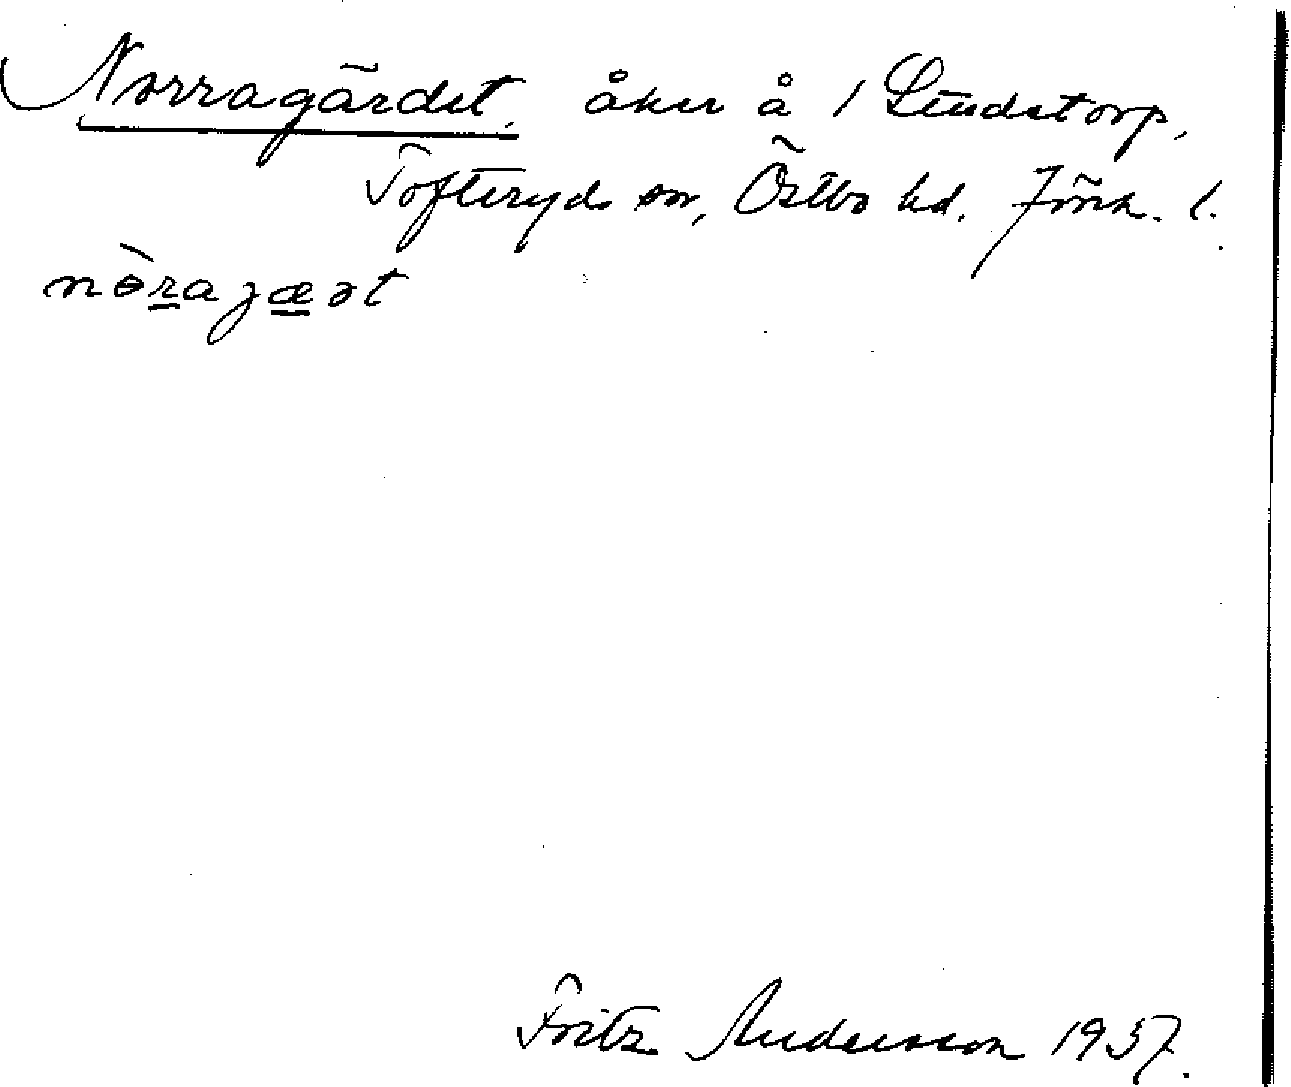 Norragärdet, åker å 1 Lindstorp,
Tofteryds sn, Östbo hd. Jönk. l.
nòraʒæət
Fritz Andersson 1937.